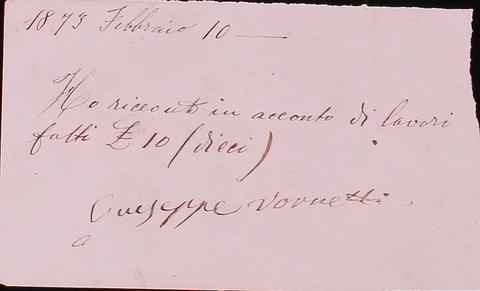 1873 Febbraio 10 —
Ho ricevuti in acconto di lavori
fatti £ 10 (dieci)
Giuseppe